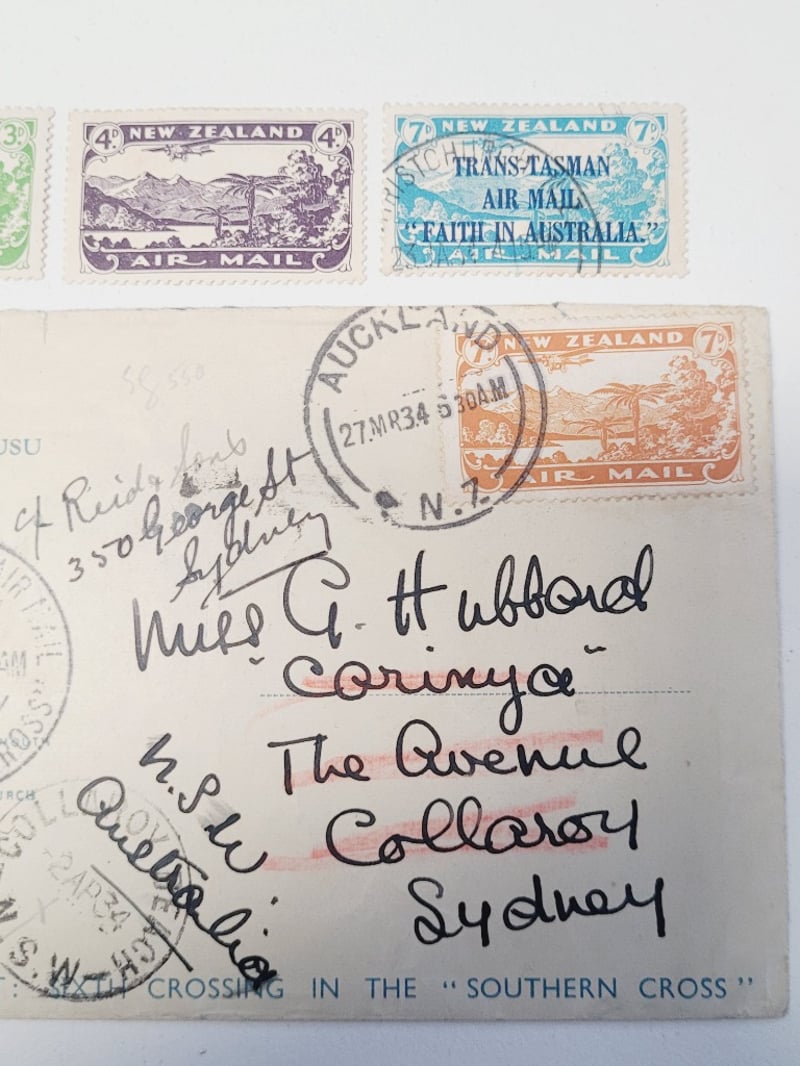 3D
4D NEW ZEALAND 4D
AIR MAIL
7D NEW ZEALAND 7D
TRANS-TASMAN
AIR MAIL.
"FAITH IN AUSTRALIA."
AIR MAIL
CHRISTCHURCH
AUCKLAND
27.MR34 630AM
N.Z
7D NEW ZEALAND 7D
AIR MAIL
Sg 550
USU
c/ Reid & Sons
350 George St
Sydney
Miss G. Hubbard
"Carinya"
The Avenue
Collaroy
Sydney
N.S.W.
Australia
AIR MAIL
AM
CROSS
OUTH
URCH
COLLAROY BEACH
2AP34
N.S.W
T: SIXTH CROSSING IN THE "SOUTHERN CROSS"